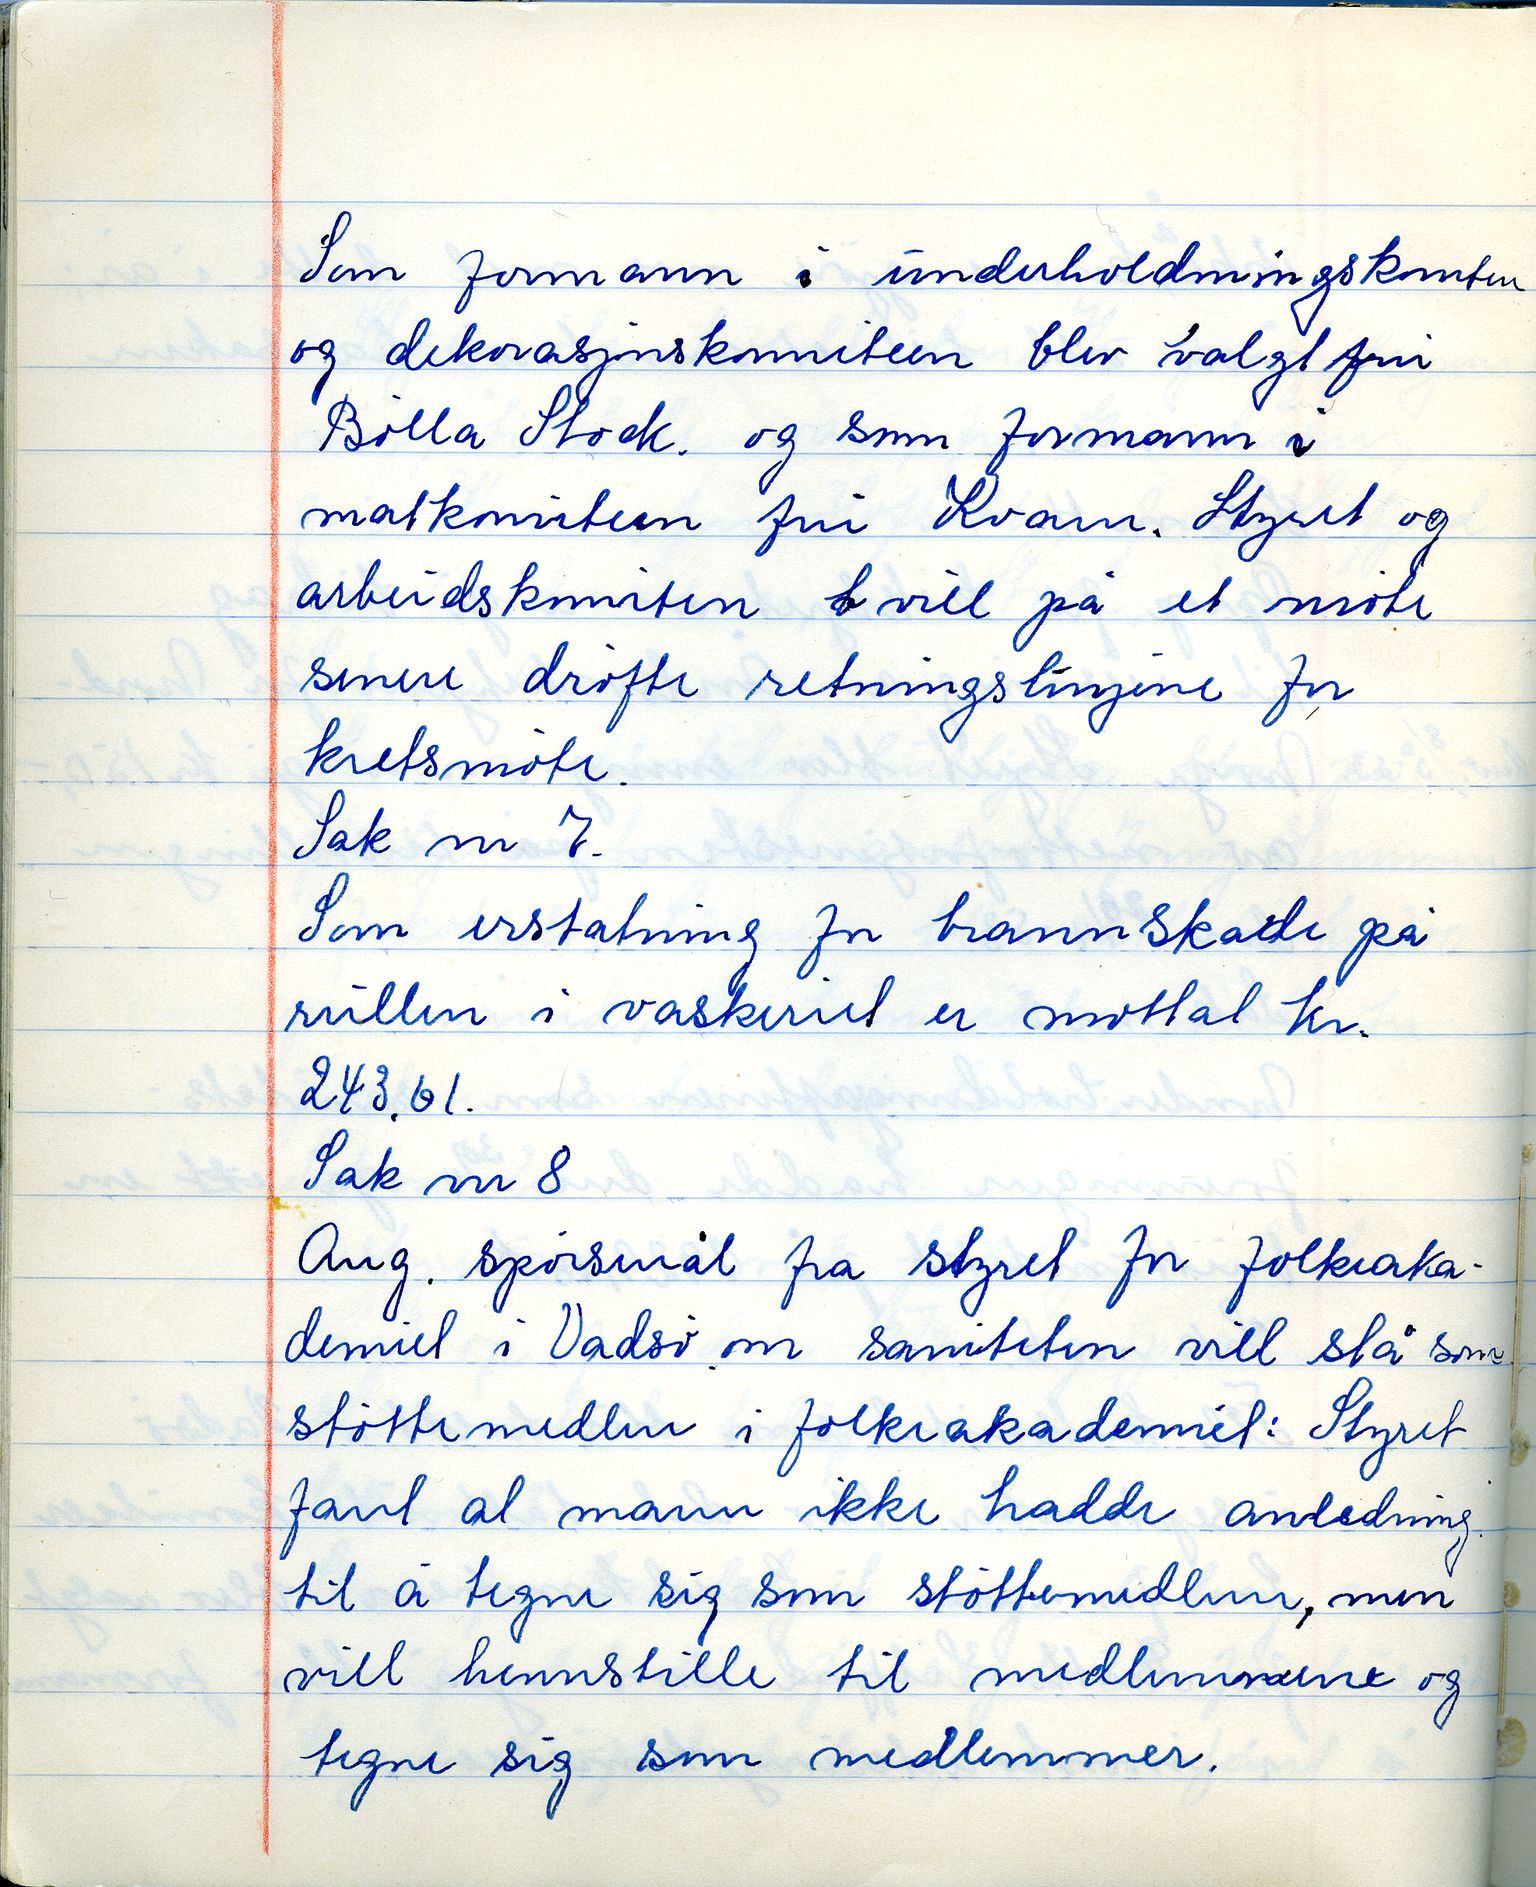 Som formann i underholdningskomiteen
og dekorasjonskomiteen blev valgt frü
Bölla Stock. og som formann i
matkomiteen frü Kvam. Styret og
arbeidskomiteen vill på et möte
senere dröfte retningslinjene for
kretsmöte.
Sak nr 7.
Som erstatning for brannskade på
rüllen i vaskeriet er mottat kr.
243.61.
Sak nr 8
Ang. spörsmål fra styret for folkeaka-
demiet i Vadsö om saniteten vill stå som
stöttemedlem i folkeakademiet: Styret
fant at mann ikke hadde anledning
til å tegne sig som stöttemedlem, men
vill hennstille til medlemmene og
tegne sig som medlemmer.